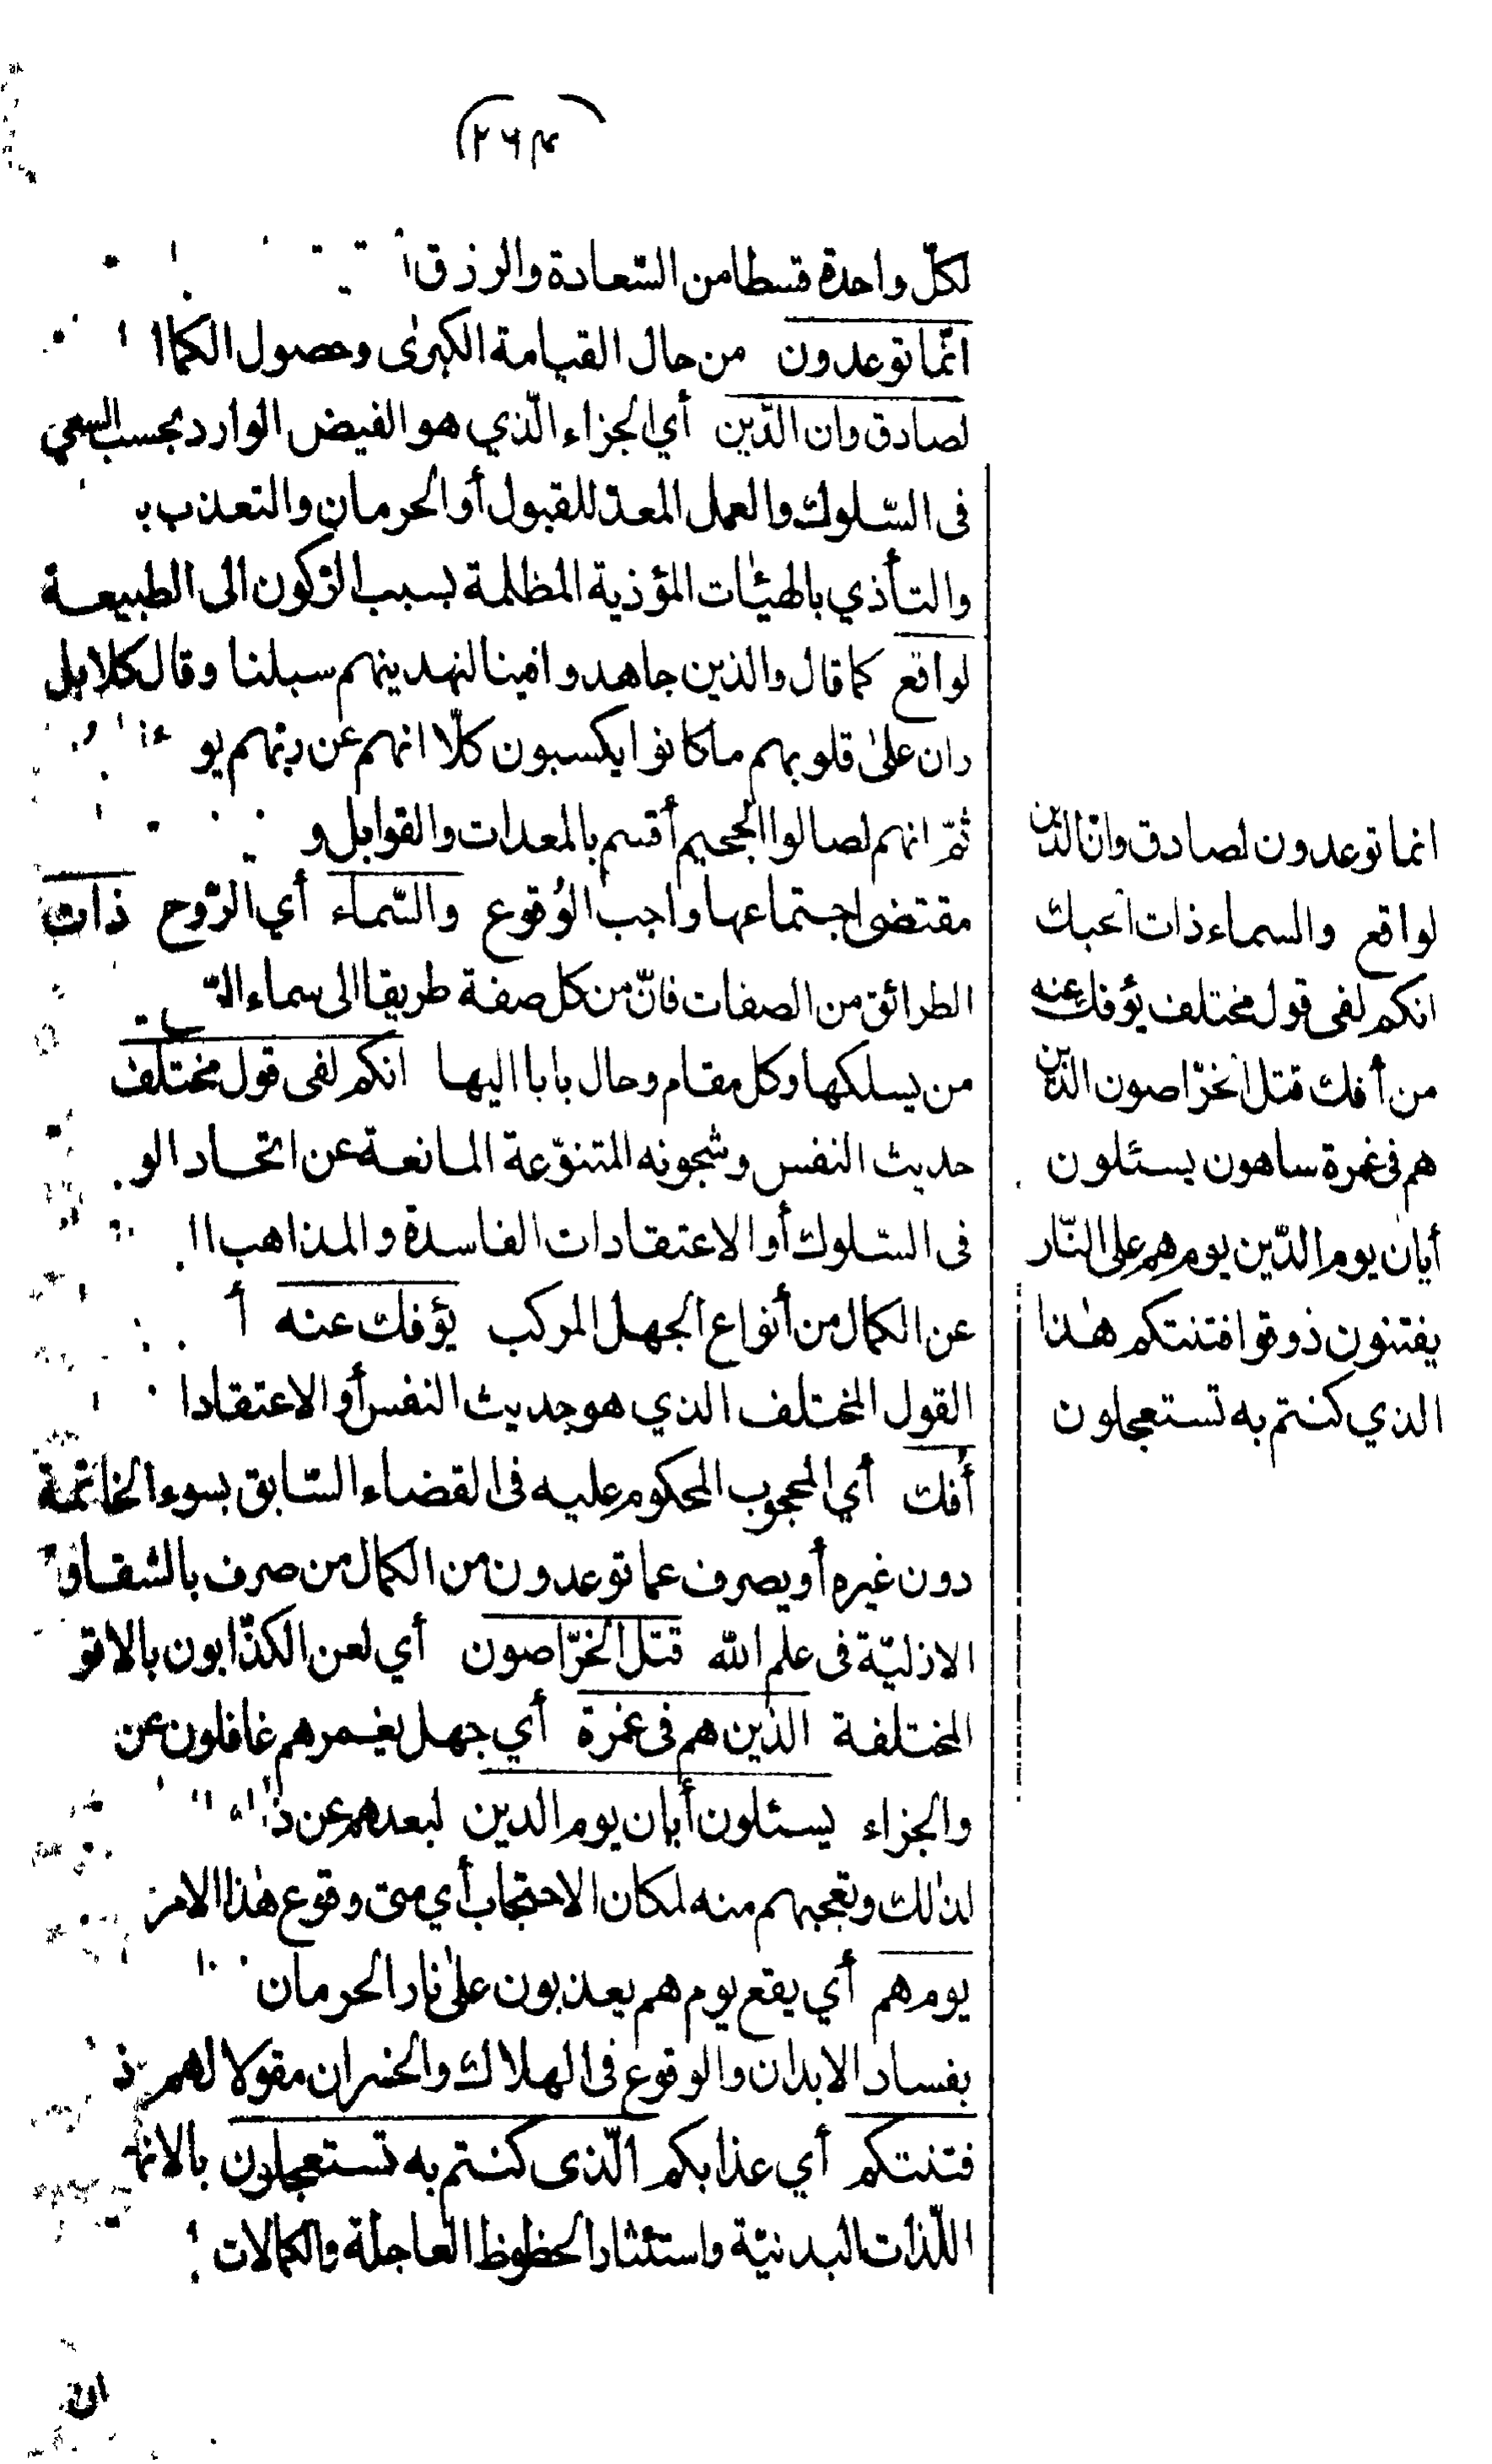 (٢٦٤)
لكلّ واحدة قسطا من السّعادة والرزق
انّما توعدون من حال القيامة الكبرى وحصول
لصادق وان الدّين أي الجزاء الّذي هو الفيض الوارد بحسب السعي
فى السّلوك والعمل المعدّ للقبول أو الحرمان والتعذب
والتأذي بالهيئات المؤذية المظلمة بسبب الرّكون الى الطبيعة
لواقع كما قال والذين جاهدوا فينا لنهدينهم سبلنا وقال كلا بل
ران على قلوبهم ما كانوا يكسبون كلّا انهم عن ربّهم
ثمّ انهم لصالوا الجحيم أقسم بالمعدات والقوابل و
مقتضى اجتماعها واجب الوُقوع والسّماء أي الرّوح ذات
الطرائق من الصفات فانّ من كل صفة طريقا الى سماء
من يسلكها وكل مقام وحال بابا اليها انكم لفى قول مختلف
حديث النفس وشجونه المتنوّعة المانعة عن اتحاد
فى السّلوك أو الاعتقادات الفاسدة والمذاهب
عن الكمال من أنواع الجهل المركب يؤفك عنه
القول المختلف الذي هو حديث النفس أو
أفك أي المحجوب المحكوم عليه فى القضاء السّابق بسوء الخاتمة
دون غيره أو يصرف عما توعدون من الكمال من صرف
الازليّة فى علم الله قتل الخرّاصون أي لعن الكذّابون
المختلفة الذين هم فى غمرة أي جهل يغمرهم غافلون عن
والجزاء يسئلون أيان يوم الدين لبعدهم عن
لذٰلك وتعجبهم منه لمكان الاحتجاب أي متى وقوع هٰذا الامر
يوم هم أي يقع يوم هم يعذبون علىٰ نار الحرمان
بفساد الابدان والوقوع فى الهلاك والخسران مقولا لهم
فتنتكم أي عذابكم الّذى كنتم به تستعجلون
اللّذات البدنيّة واستئثار الحظوظ العاجلة والكمالات
انما توعدون لصادق وانّ الدّين
لواقع والسماء ذات الحبك
انكم لفى قول مختلف يؤفك عنه
من أفك قتل الخرّاصون الذين
هم فى غمرة ساهون يسئلون
أيان يوم الدّين يوم هم على النّار
يفتنون ذوقوا فتنتكم هٰذا
الذي كنتم به تستعجلون